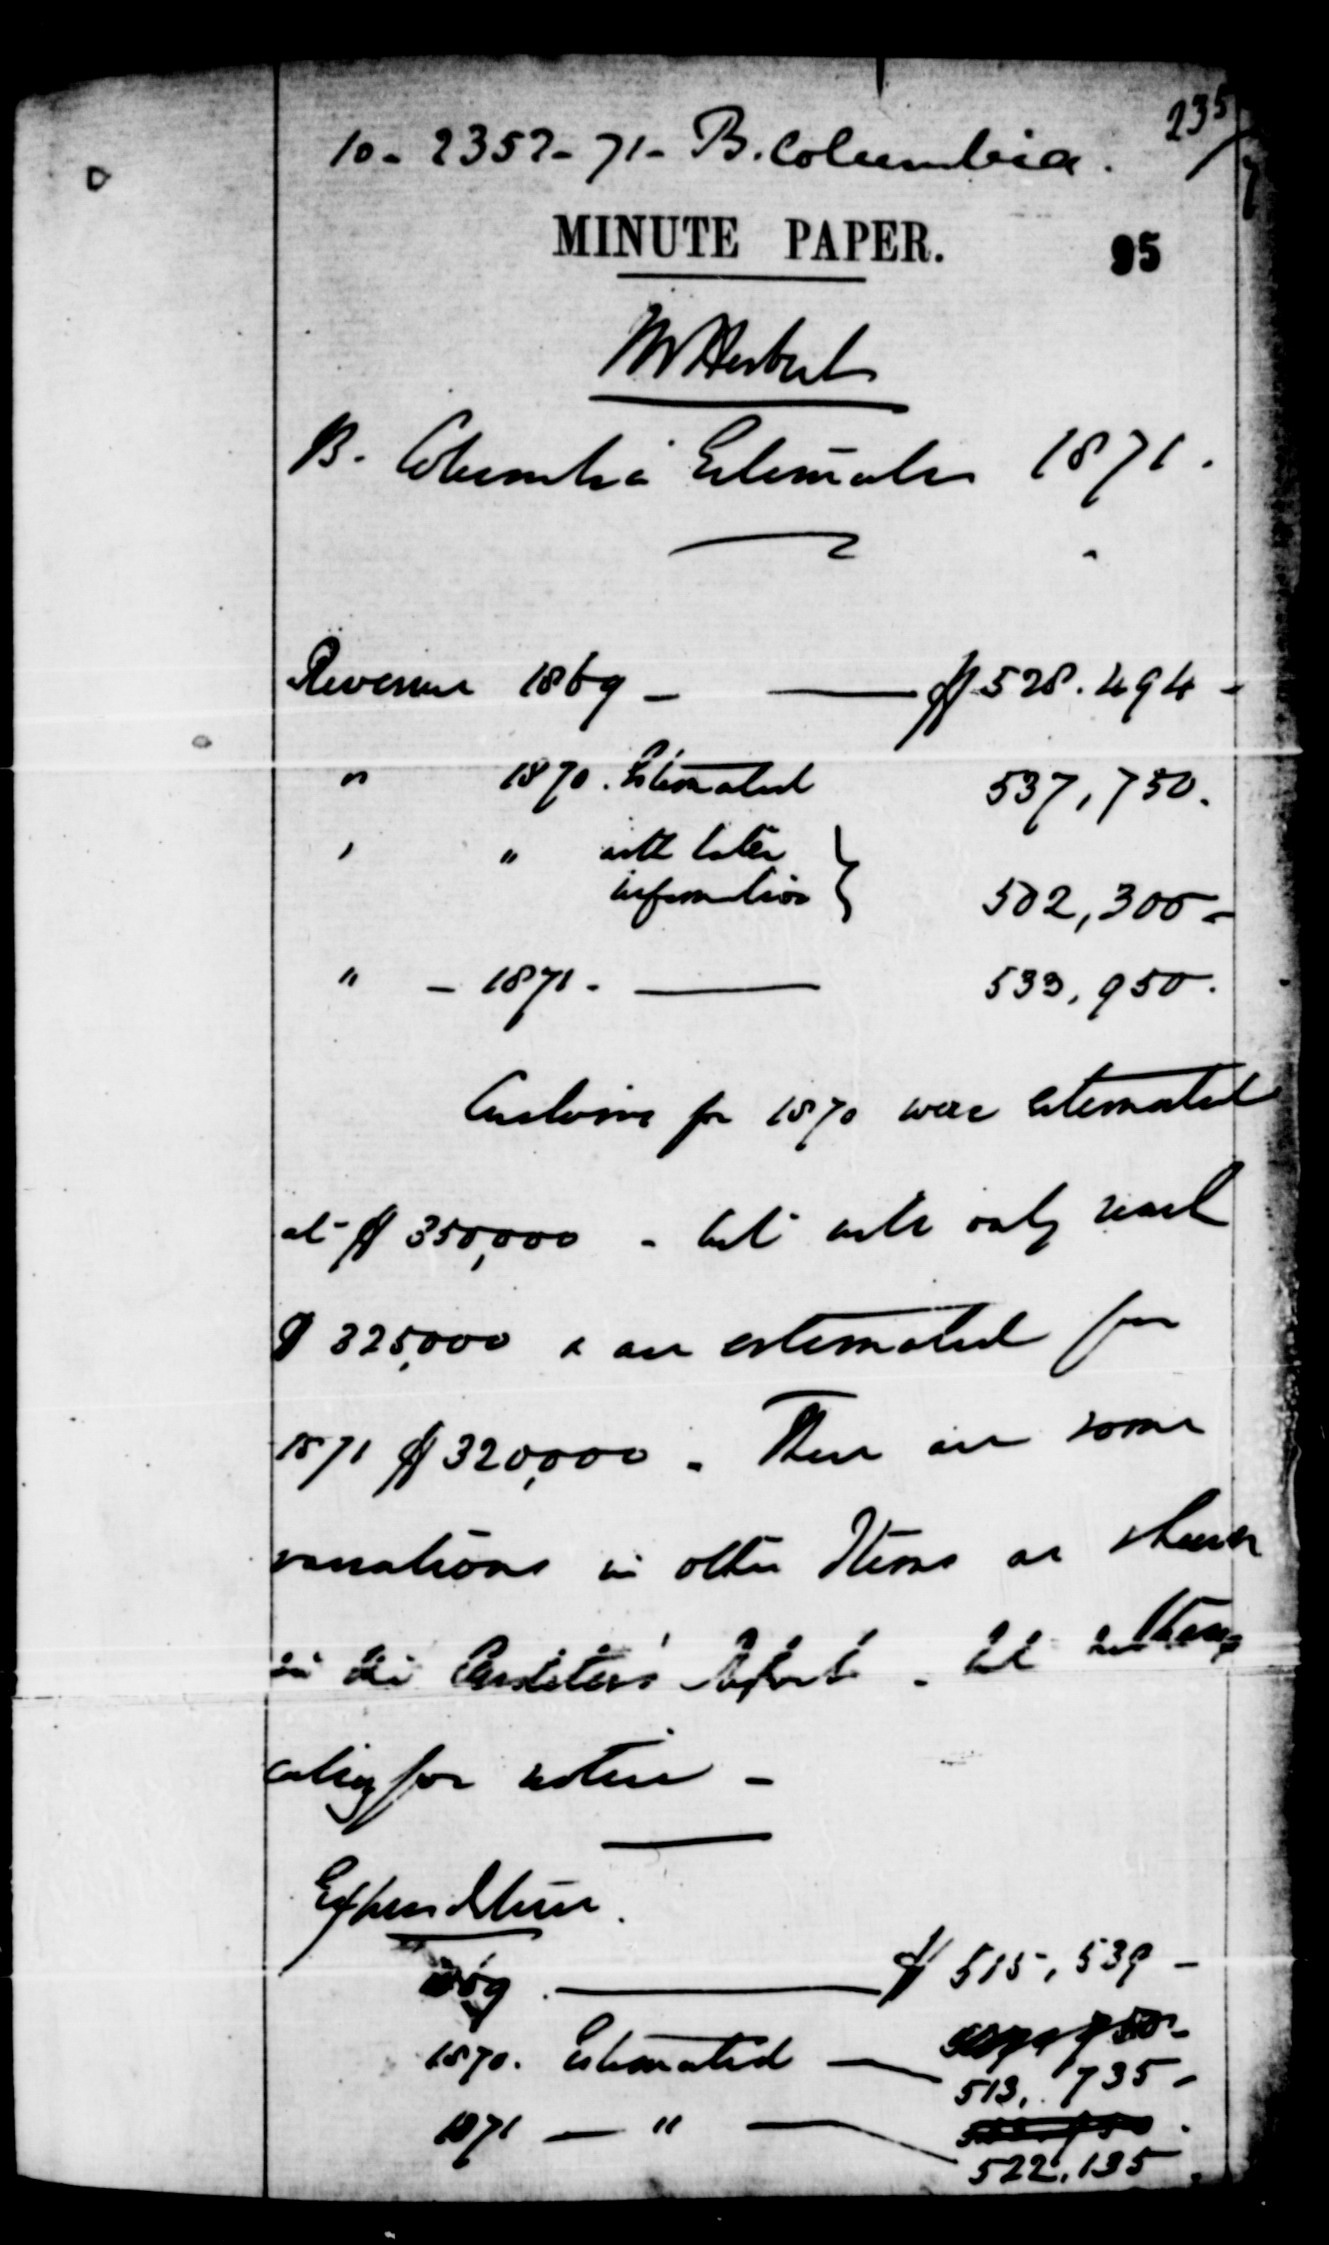 235
10 - 2352 - 71 - B. Columbia.
MINUTE PAPER.
95
Mr Herbert
B. Columbia Estimates 1871.
Revenue 1869 — — $528.494 -
" 1870. Estimated 537,750.
" " with later
information } 502,300 -
" - 1871 - — 533,950.
Customs for 1870 were estimated
at $350,000 - but will only reach
$325,000 & are estimated for
1871 $320,000. There are some
variations in other Items as shewn
in the Auditors' Report - but nothing
calling for notice -
Expenditure.
1869. — $515,539 -
1870. Estimated — 513,735 -
1871 — " — 522,135